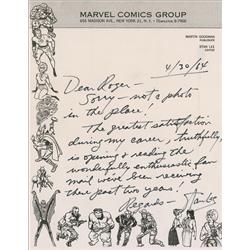 MARVEL COMICS GROUP
655 MADISON AVE., NEW YORK 21, N. Y. • TEmpleton 8-7900
MARTIN GOODMAN
PUBLISHER
STAN LEE
EDITOR
4/30/64
Dear Roger —
Sorry — not a photo
in the place!
The greatest satisfaction
during my career, truthfully,
is opening & reading the
wonderfully enthusiastic fan
mail we've been receiving
these past two years!
Regards — Stan Lee